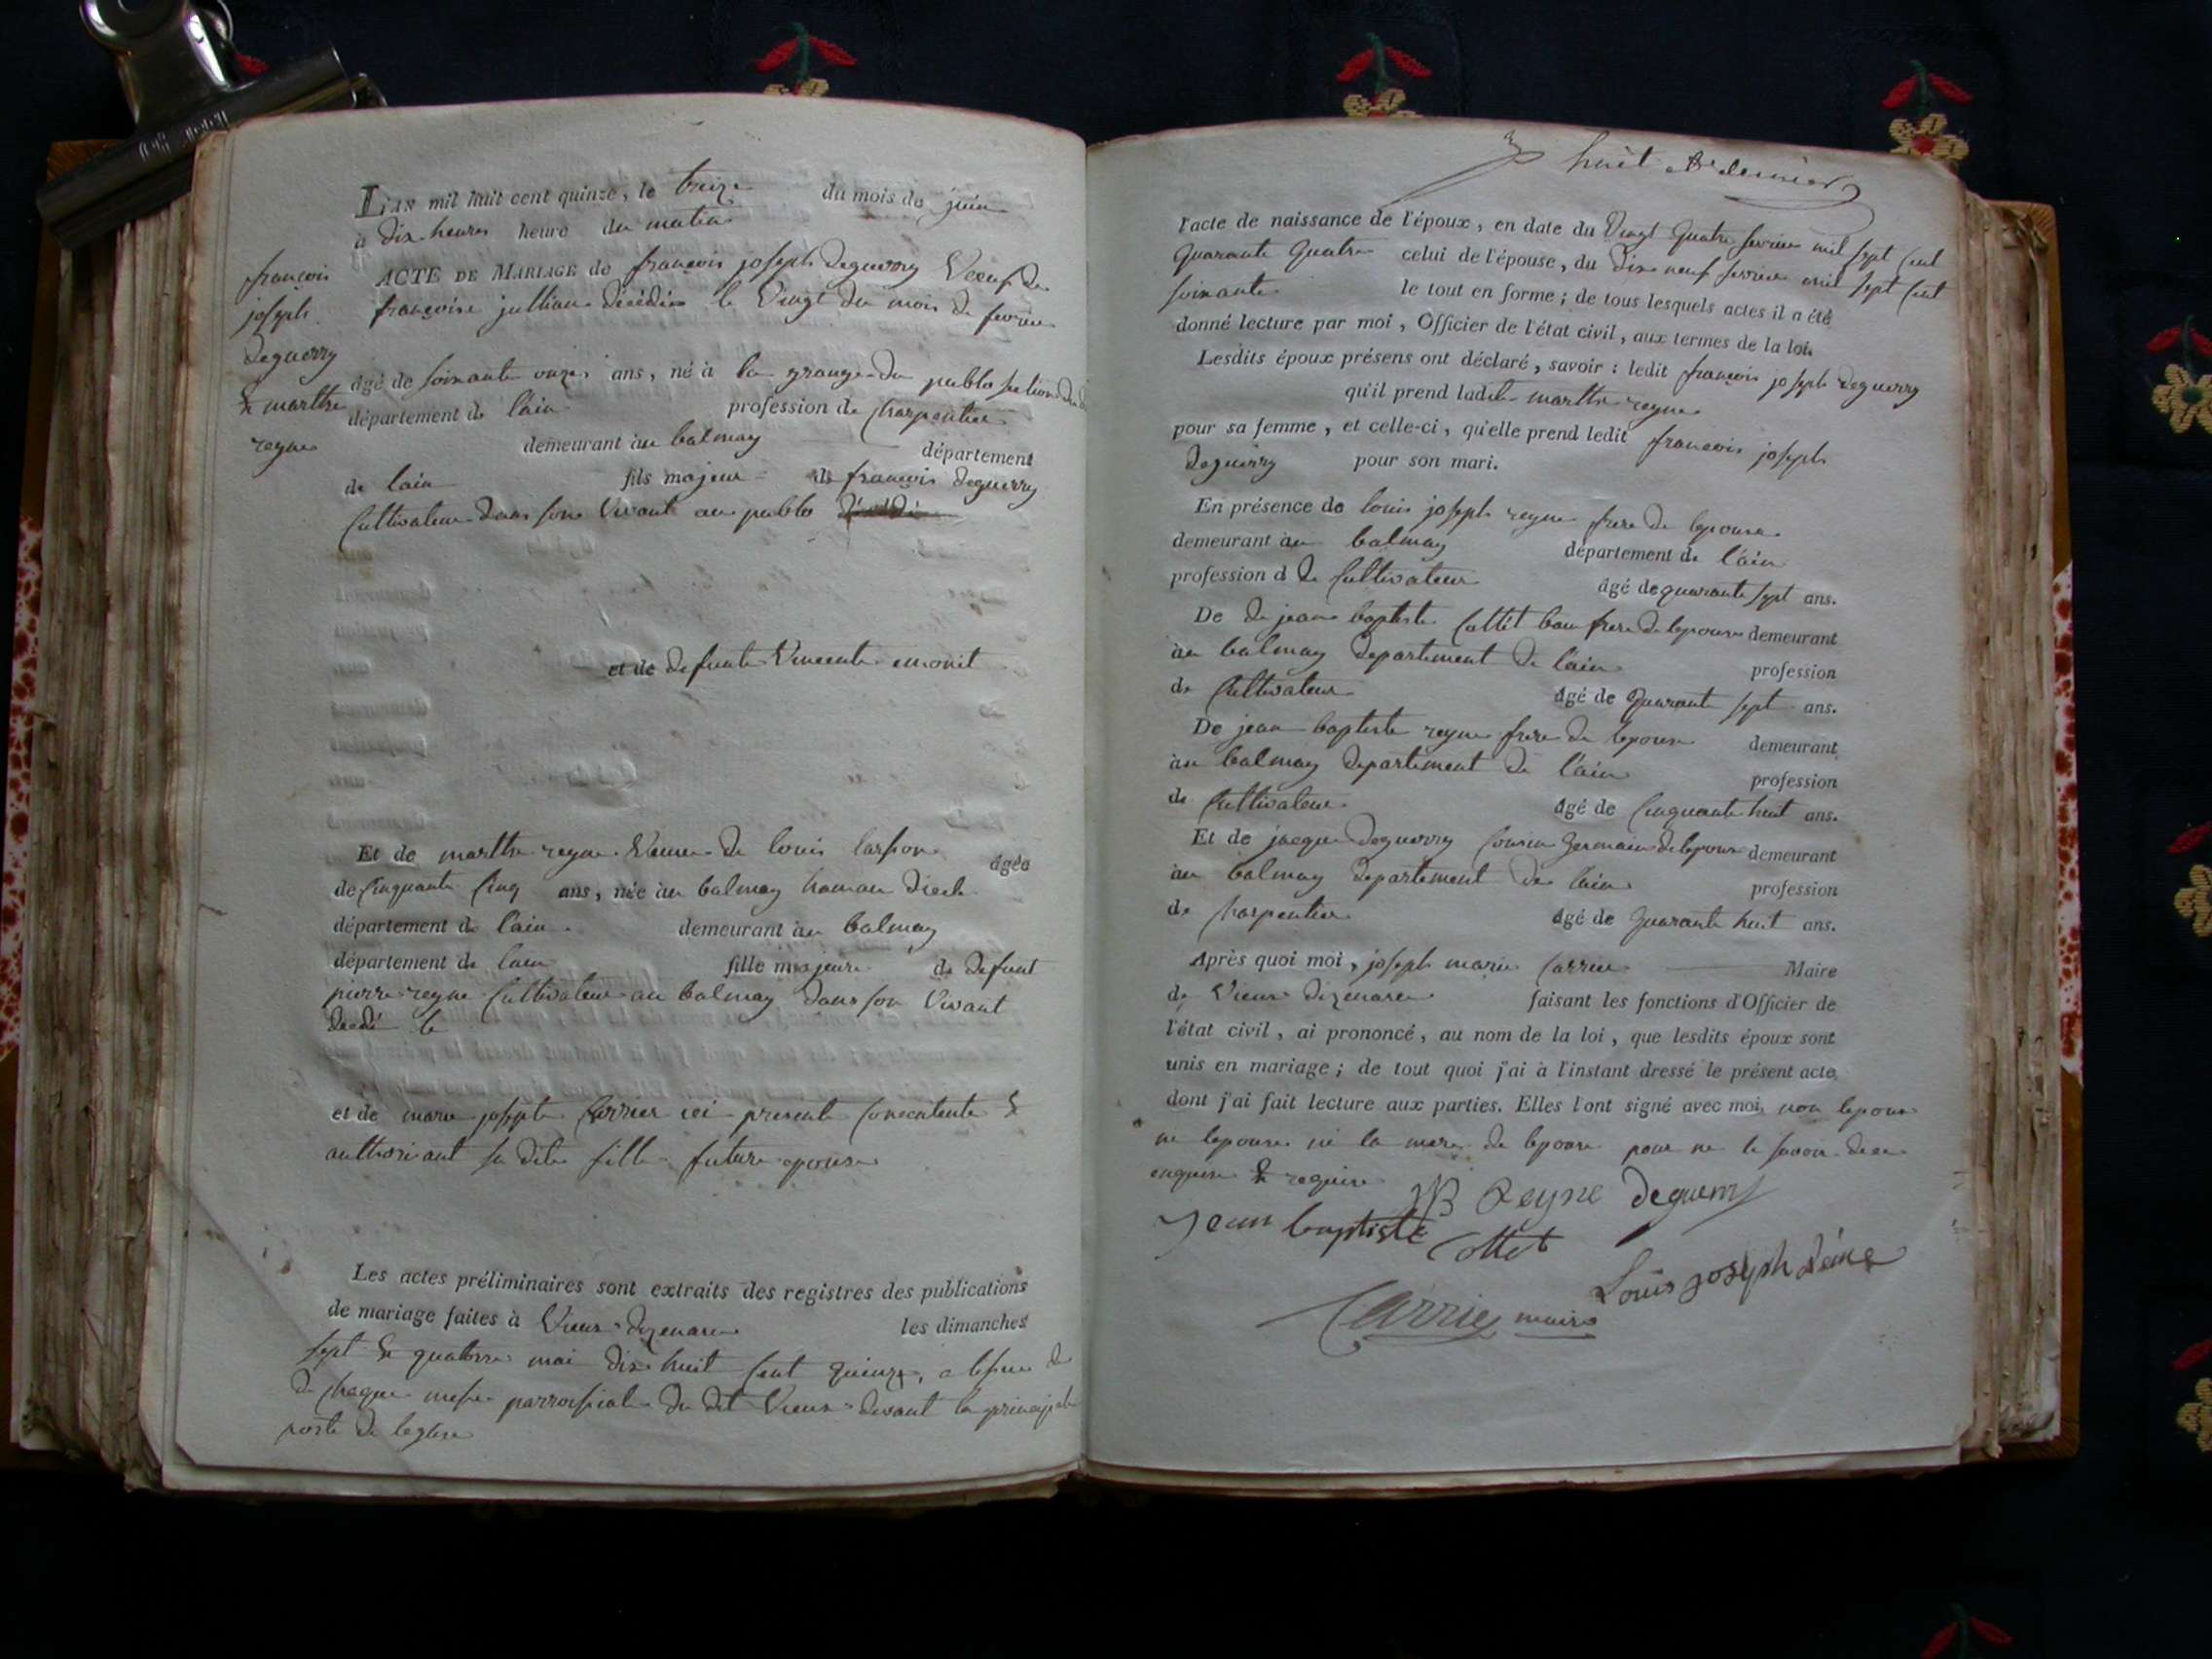 L'AN mil huit cent quinze, le treize du mois de juin
à dix heures heure du matin
françois
joseph
deguerry
& marthe
reyne
ACTE DE MARIAGE de françois joseph deguerry Veuf de
françoise jullian décédée le Vingt du mois de fevrier
âgé de soixante onze ans, né à la grange du pablo section du
département de lain profession de charpentier
demeurant au balmay département
de lain fils majeur de françois deguerry
Cultivateur dans son Vivant au pablo
et de defunte Vincente emonit
Et de marthe reyne Veuve de louis Carrion âgée
de Cinquante Cinq ans, née au balmay hamau
département de lain demeurant au balmay
département de lain fille majeure de defunt
pierre reyne Cultivateur au balmay dans son Vivant
décédé le
et de marie josephte Carrier ici presente Consentente &
authorisant sa dite fille future epouse
Les actes préliminaires sont extraits des registres des publications
de mariage faites à Vieux dizenave les dimanches
sept & quatorze mai dix huit Cent quinze, a lissue de
de chaque messe parroissiale du dit Vieux devant la principale
porte de leglise
huit dernier
l'acte de naissance de l'époux, en date du Vingt quatre fevrier mil sept Cent
quarante quatre celui de l'épouse, du dix neuf fevrier mil sept Cent
soixante le tout en forme ; de tous lesquels actes il a été
donné lecture par moi, Officier de l'état civil, aux termes de la loi.
Lesdits époux présens ont déclaré, savoir : ledit françois joseph deguerry
qu'il prend ladite marthe reyne
pour sa femme, et celle-ci, qu'elle prend ledit françois joseph
deguerry pour son mari.
En présence de louis joseph reyne frere de lepouse
demeurant au balmay département de lain
profession d de Cultivateur âgé de quarante sept ans.
De de jean baptiste Cottet bau frere de lepouse demeurant
au balmay departement de lain profession
de Cultivateur âgé de quarante sept ans.
De jean baptiste reyne frere de lepouse demeurant
au balmay departement de lain profession
de Cultivateur âgé de Cinquante huit ans.
Et de jacque deguerry Cousin germain de lepoux demeurant
au balmay departement de lain profession
de charpentier âgé de quarante huit ans.
Après quoi moi, joseph marie Carrier Maire
de Vieux dizenave faisant les fonctions d'Officier de
l'état civil, ai prononcé, au nom de la loi, que lesdits époux sont
unis en mariage ; de tout quoi j'ai à l'instant dressé le présent acte
dont j'ai fait lecture aux parties. Elles l'ont signé avec moi, non lepoux
ne lepouse ni la mere de lepouse pour ne le savoir de ce
enquise & requise
JB Reyne deguerry
jean baptiste Cottet
Louis joseph Reine
Carrier maire